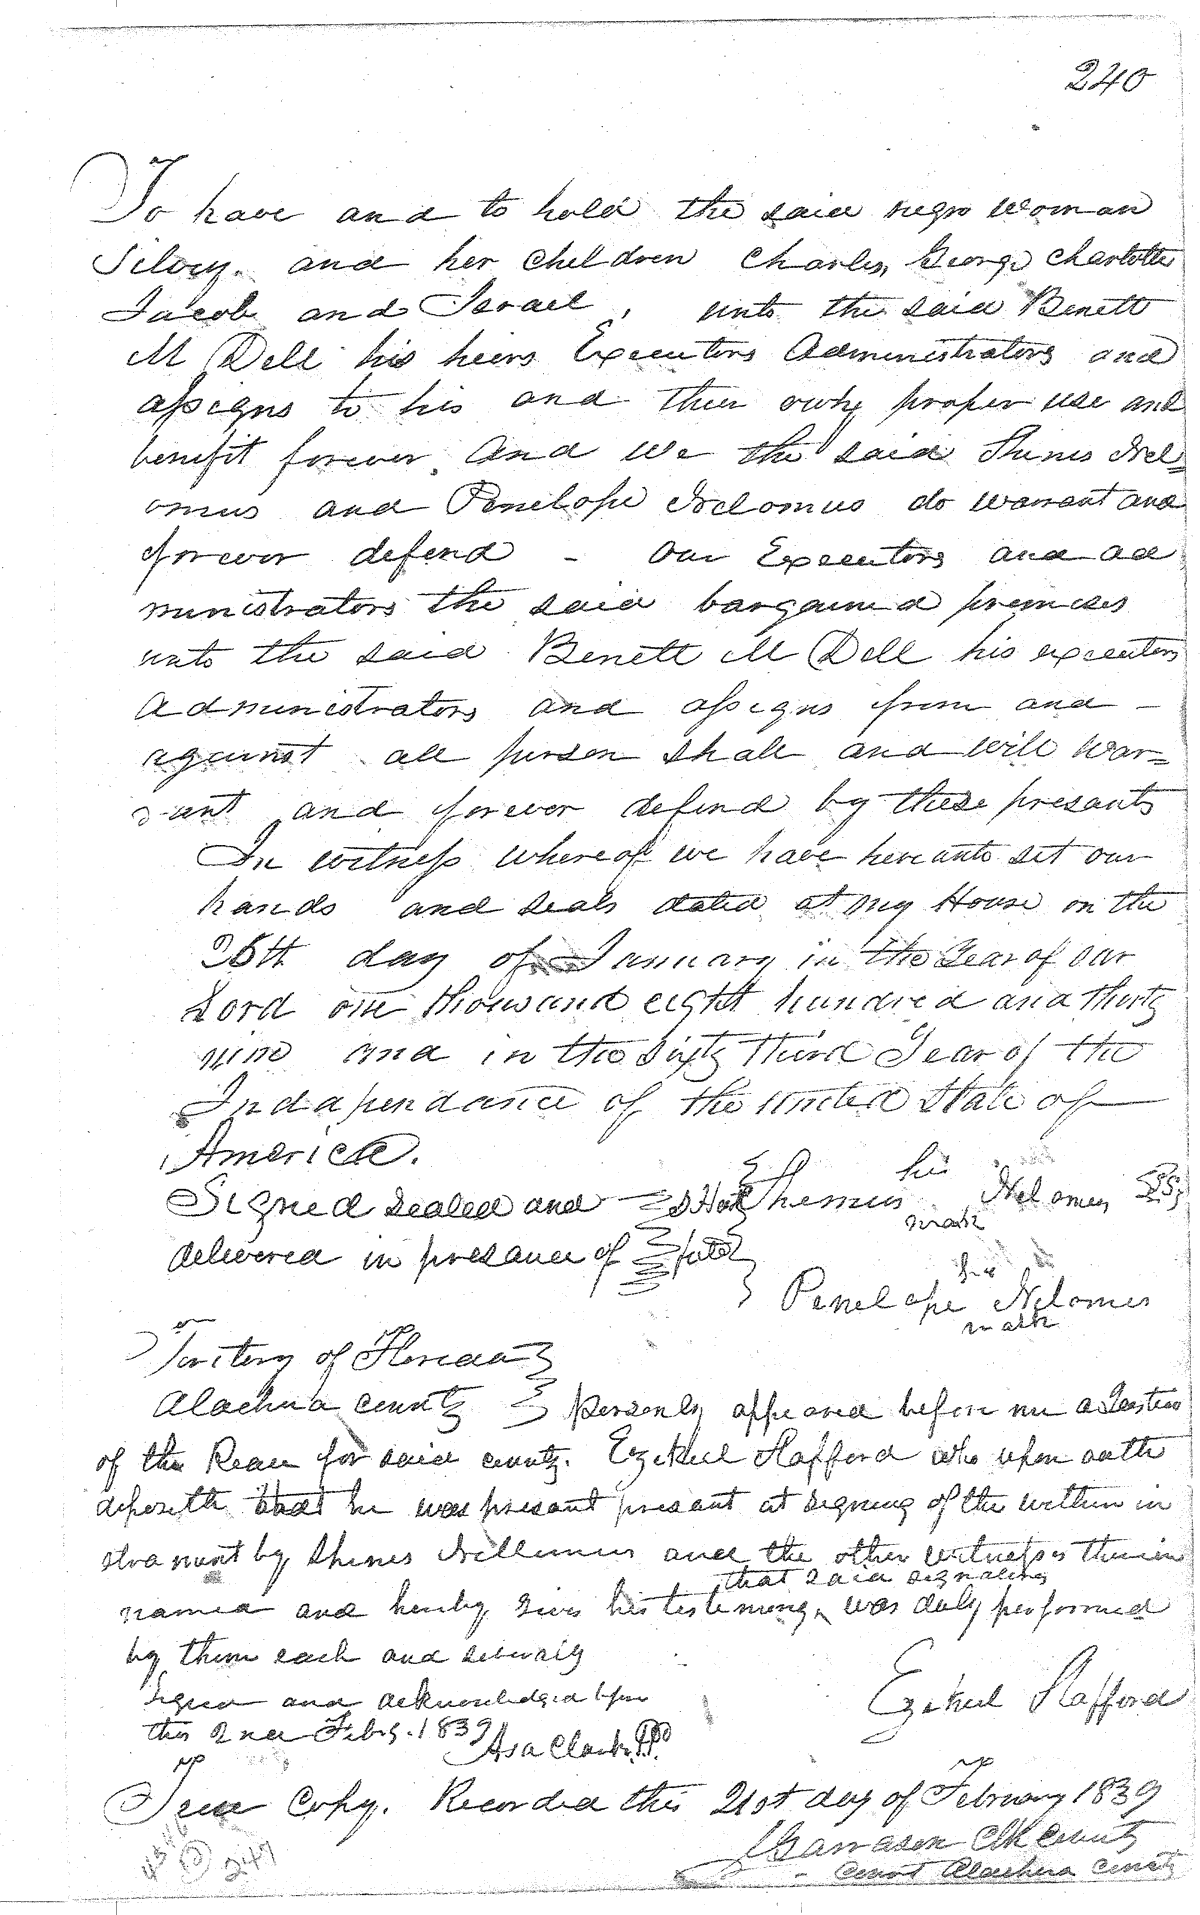 240
To have and to hold the said negro woman
Silvey. and her children Charles, George Charlotte
Jacob and Israel, unto the said Benett
M Dell his heirs Executors Administrators and
assigns to his and their own proper use and
benefit forever. And we the said Shimes Nel=
omus and Penelope Nelomus do warrant and
forever defend - our Executors and ad
ministrators the said bargained premises
unto the said Benett M Dell his executors
Administrators and assigns from and -
against all person shall and will War=
rant and forever defend by these presants
In witness whereof we have hereunto set our
hands and seals dated at my House on the
26th day of January in the Year of our
Lord one thousand eight hundred and thirty
nine and in the Sixty third Year of the
Indapendance of the United State of
America.
Signed sealed and Shemus his Nelomus LS
mark
delivered in presance of
her
Penelope Nelomus
mark
Territory of Florida
Alachua County Personly appeared before me a Justice
of the Peace for said county. Ezekiel Stafford who upon oath
deposeth that he was present present at signing of the within in
strament by Shimes Nellomus and the other witnesses therein
that said signaling
named and hereby gives his testemony, was duly performed
by them each and severaly
Signed and acknowledged before
Ezekiel Stafford
this 2nd Feby. 1839
Asa Clark J.P.
True Copy. Recorded this 21st day of February 1839
Clk County
Court Alachua County
247